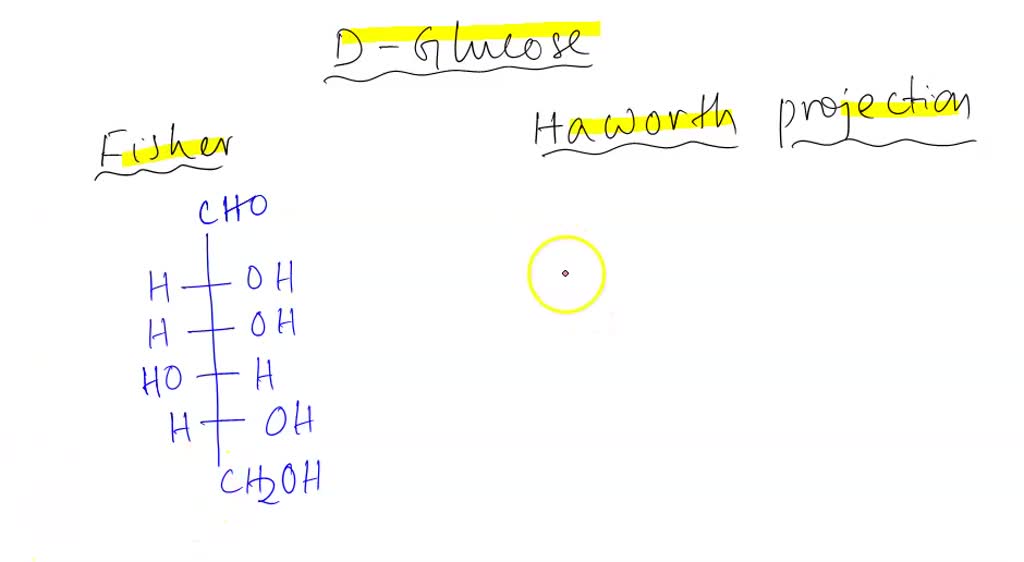 D-Glucose
Haworth projection
Fisher
CHO
H OH
H OH
HO H
H OH
CH2OH